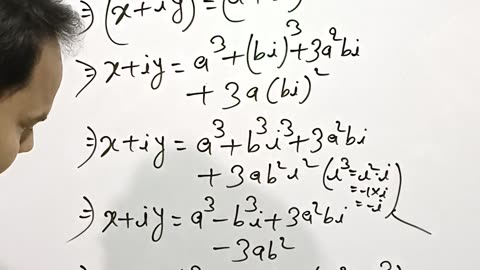 ⇒ (x+iy) = (a+
⇒ x+iy = a³+(bi)³+3a²bi
+ 3a(bi)²
⇒ x+iy = a³+b³i³+3a²bi
+ 3ab²i² (i³=i²·i
=-1×i
=-i)
⇒ x+iy = a³-b³i+3a²bi
- 3ab²